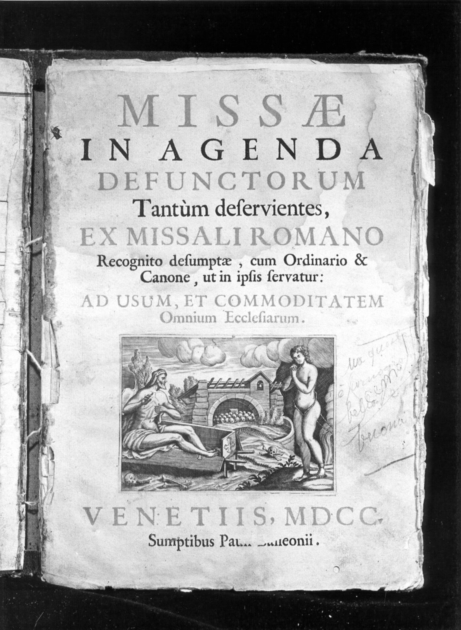 MISSÆ
IN AGENDA
DEFUNCTORUM
Tantùm deſervientes,
EX MISSALI ROMANO
Recognito deſumptæ, cum Ordinario &
Canone, ut in ipſis ſervatur:
AD USUM, ET COMMODITATEM
Omnium Eccleſiarum.
VENETIIS, MDCC.
Sumptibus